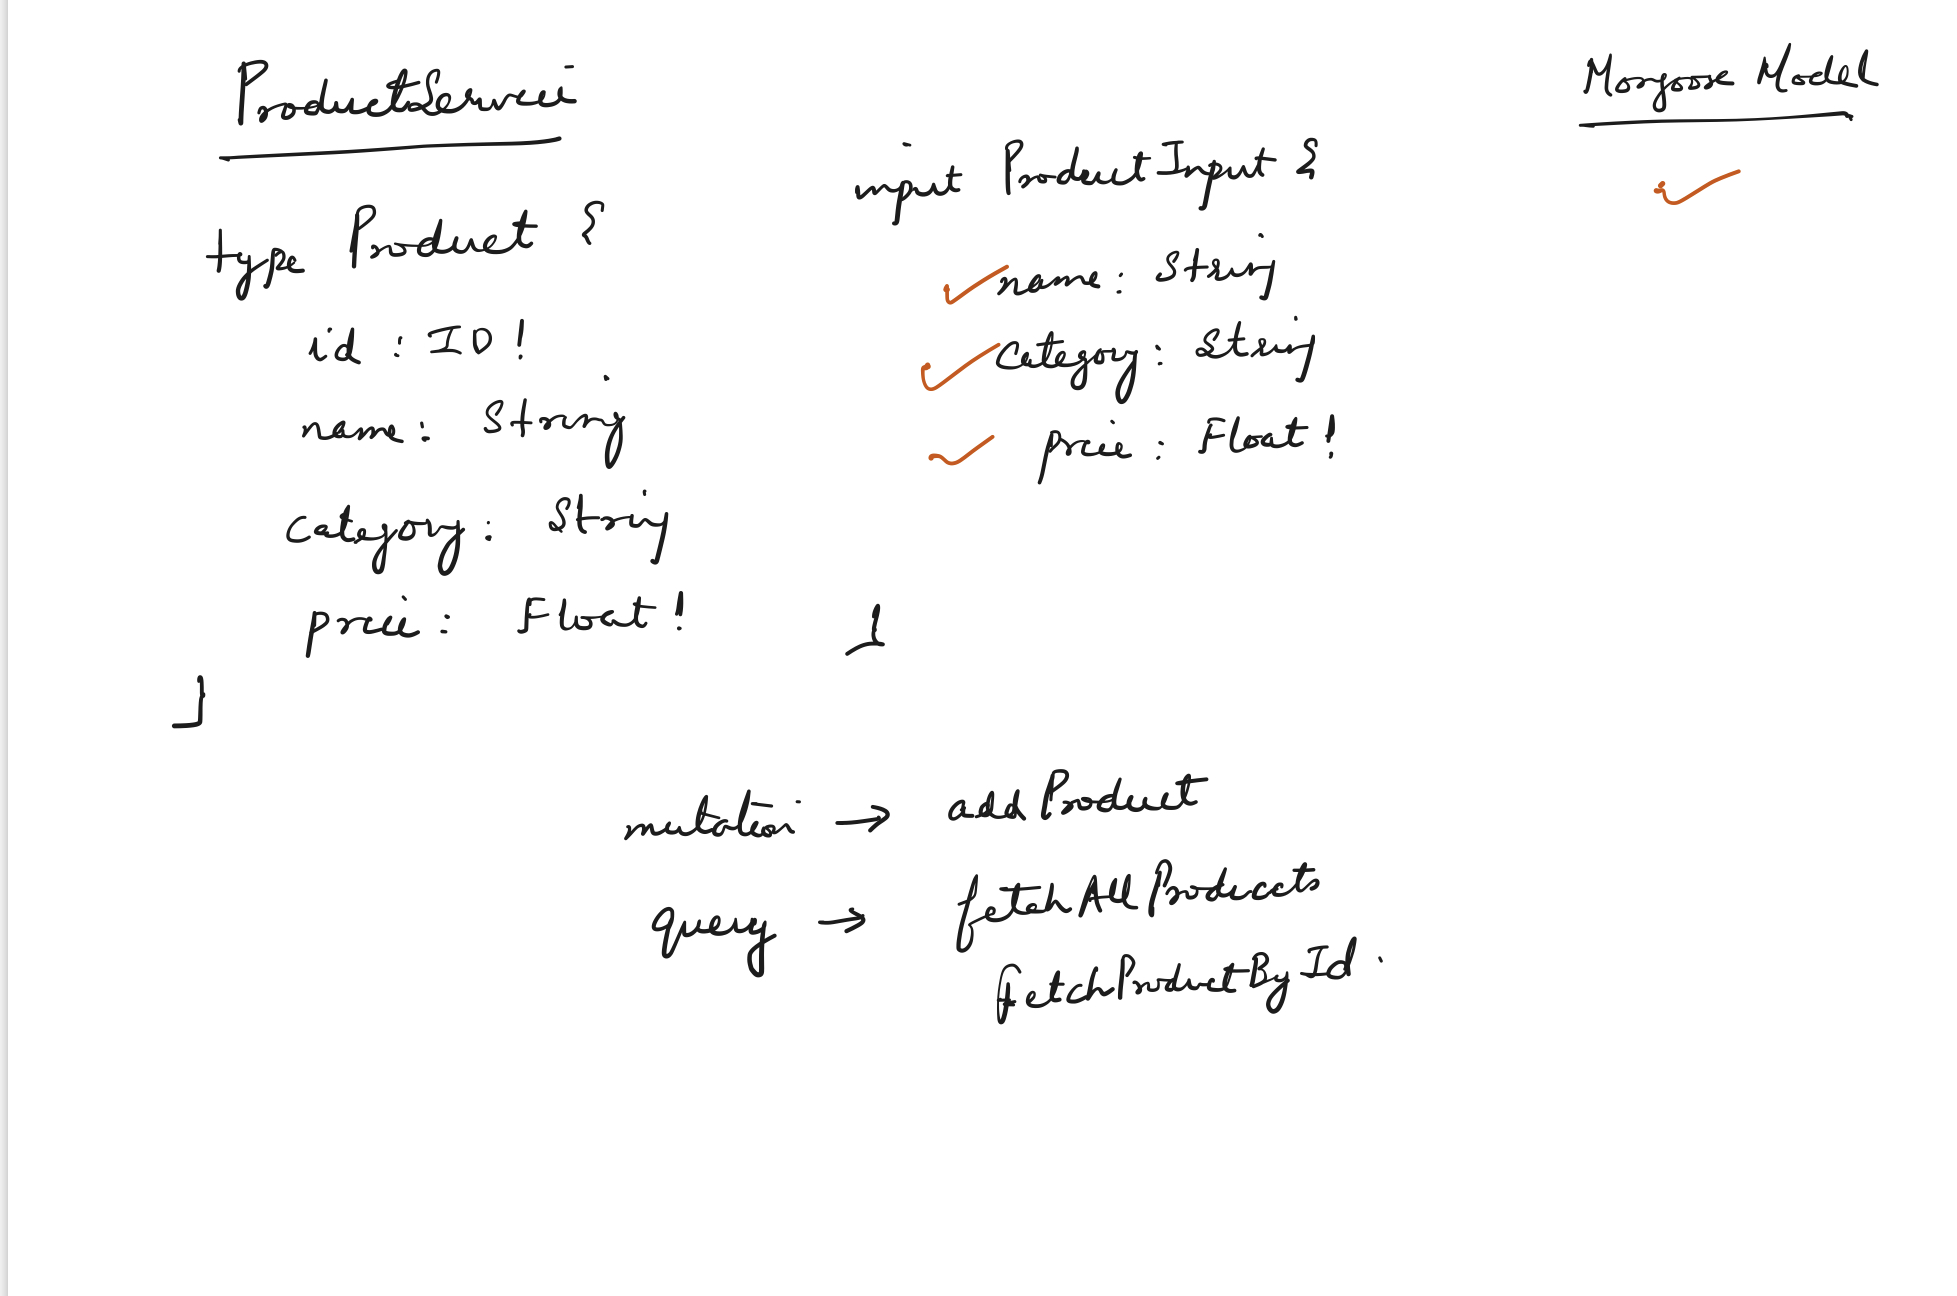 ProductService
Mongoose Model
type Product {
id : ID !
name : String
category : String
price : Float !
}
input ProductInput {
name : String
category : String
price : Float !
}
mutation → addProduct
query → fetchAllProducts
fetchProductById.